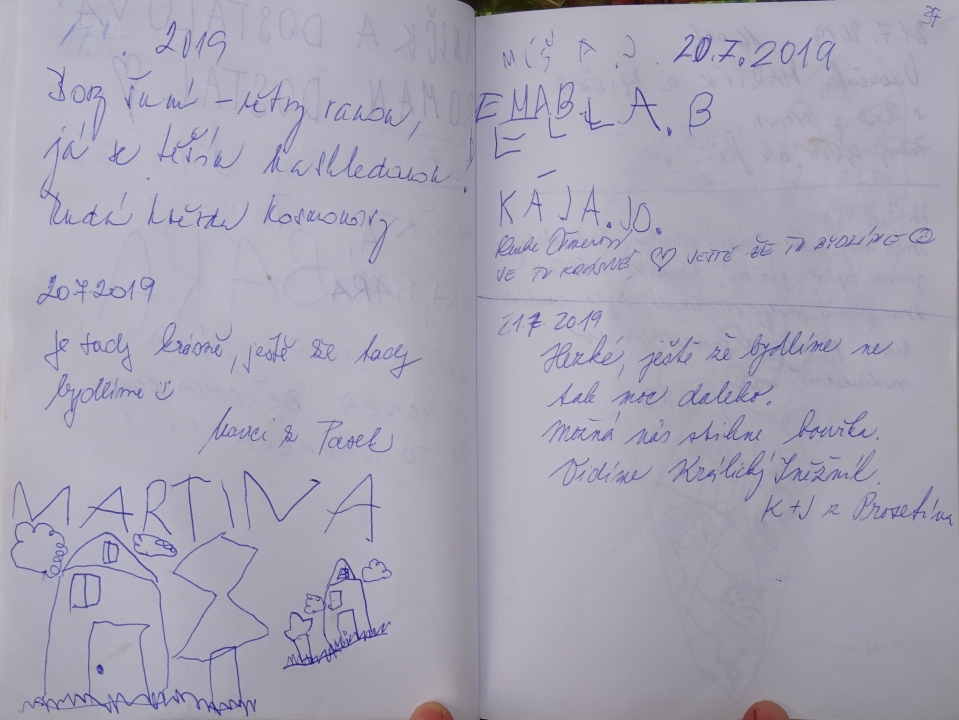 2019
Bory šumí – větry vanou,
já se těším na shledanou!
Rudá hvězda Kosmonosy
20 7 2019
Je tady krásně, ještě že tady
bydlíme
z Pasek
MARTINA
37
MÍŠA D. 20.7.2019
EMA B.
ELLA. B
KÁJA. JO.
JE TU KRÁSNĚ JEŠTĚ ŽE TU BYDLÍME
21.7 2019
Hezké, ještě že bydlíme ne
tak moc daleko.
Možná nás stihne bouřka.
Vidíme Králický Sněžník.
K+J z Prosetína